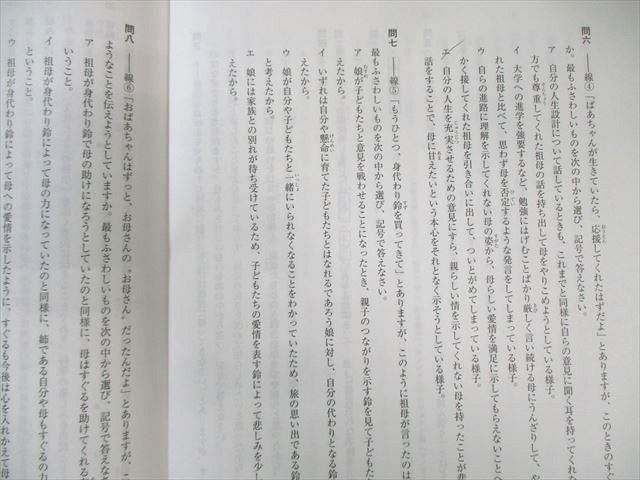 問六 ――線④「ばあちゃんが生きていたら、応援してくれたはずだよ」とありますが、このときのすぐ
か。最もふさわしいものを次の中から選び、記号で答えなさい。
ア 自分の人生設計について話しているときも、これまでと同様に自らの意見に聞く耳を持ってくれな
方でも尊重してくれた祖母の話を持ち出して母をやりこめようとしている様子。
イ 大学への進学を強要するなど、勉強にはげむことばかり厳しく言い続ける母にうんざりして、や
れた祖母と比べて、思わず母を否定するような発言をしてしまっている様子。
ウ 自らの進路に理解を示してくれない母の姿から、母らしい愛情を満足に示してもらえないことへ
かく接してくれた祖母を引き合いに出して、ついとがめてしまっている様子。
エ 自分の人生を充実させるための意見にすら、親らしい情を示してくれない母を持ったことが悲
話をすることで、母に甘えたいという本心をそれとなく示そうとしている様子。
問七 ――線⑤「もうひとつ、身代わり鈴を買ってきて」とありますが、このように祖母が言ったのは
最もふさわしいものを次の中から選び、記号で答えなさい。
ア 娘が子どもたちと意見を戦わせることになったとき、親子のつながりを示す鈴を見て子どもた
えたから。
イ いずれは自分や懸命に育てた子どもたちとはなれるであろう娘に対し、自分の代わりとなる鈴
えたから。
ウ 娘が自分や子どもたちと一緒にいられなくなることをわかっていたため、旅の思い出である鈴
と考えたから。
エ 娘には家族との別れが待ち受けているため、子どもたちの愛情を表す鈴によって悲しみを少し
えたから。
問八 ――線⑥「おばあちゃんはずっと、お母さんの〝お母さん〟だったんだよ」とありますが、こ
ようなことを伝えようとしていますか。最もふさわしいものを次の中から選び、記号で答えな
ア 祖母が身代わり鈴で母の助けになろうとしていたのと同様に、母はすぐるを助けてくれる
いうこと。
イ 祖母が身代わり鈴によって母の力になっていたのと同様に、姉である自分や母もすぐるの力
ということ。
ウ 祖母が身代わり鈴によって母への愛情を示したように、すぐるも今後は心を入れかえて母